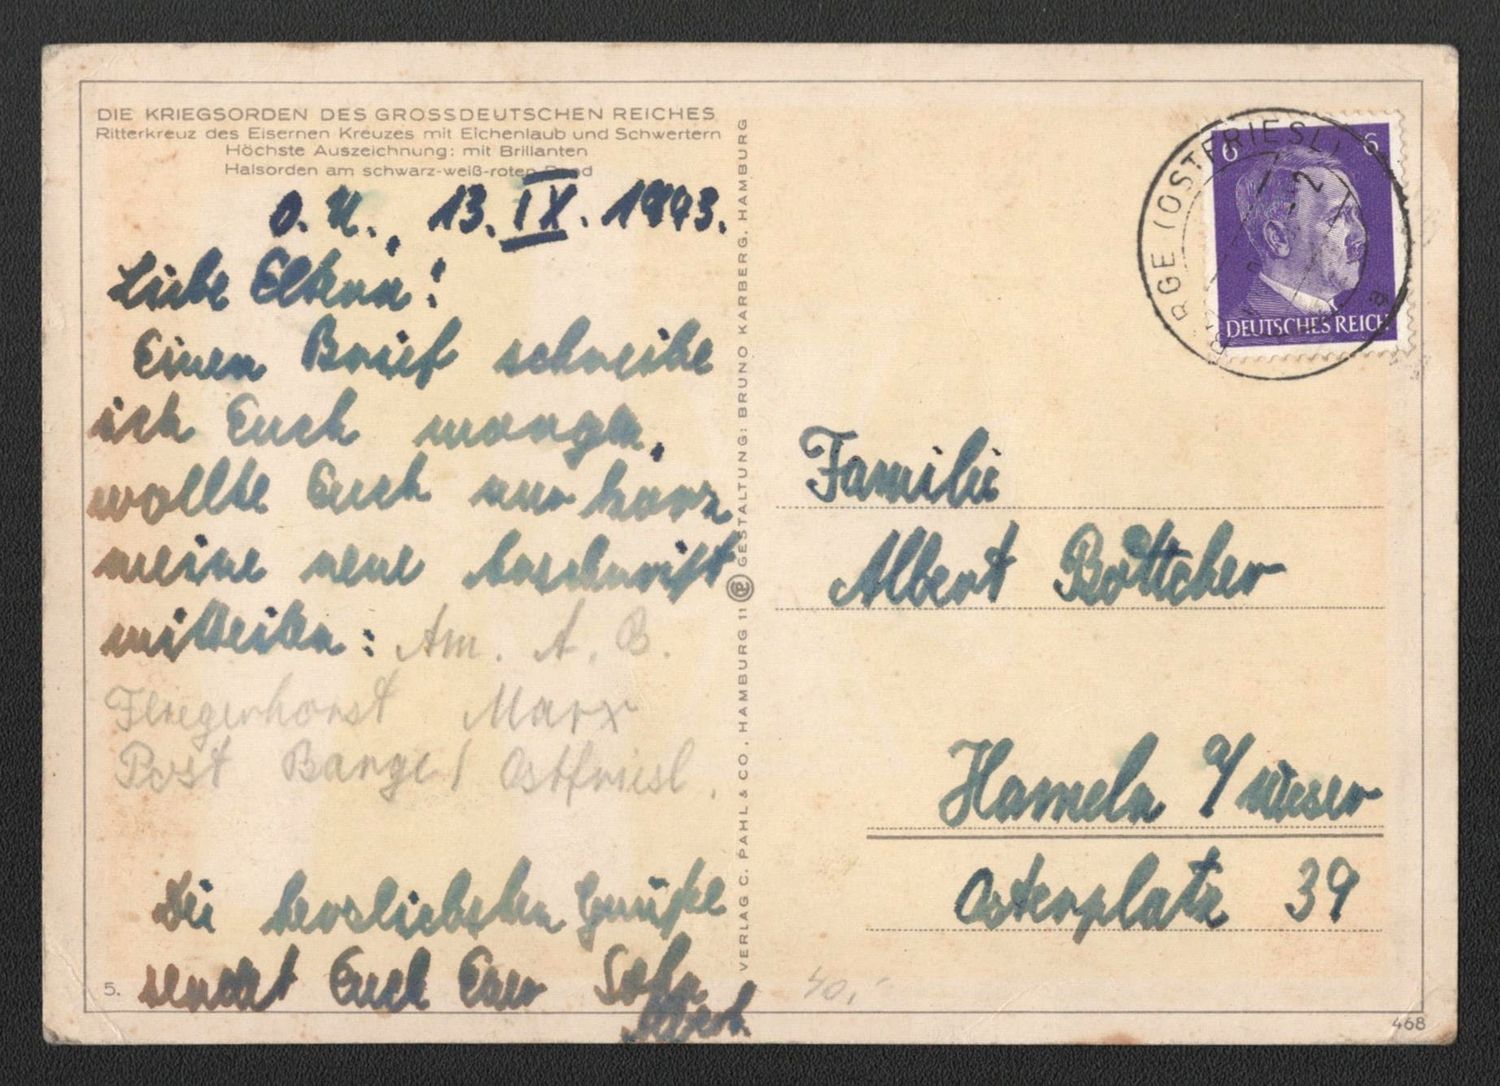 DIE KRIEGSORDEN DES GROSSDEUTSCHEN REICHES
Ritterkreuz des Eisernen Kreuzes mit Eichenlaub und Schwertern
Höchste Auszeichnung: mit Brillanten
Halsorden am schwarz-weiß-roten Band
O.U., 13. IX. 1943.
Liebe Eltern!
Einen Brief schreibe
ich Euch morgen,
wollte Euch nur kurz
meine neue Anschrift
mitteilen: Am. A. B.
Fliegerhorst Marx
Post Barge / Ostfriesl.
Die herzliebsten Grüße
sendet Euch Euer Sohn
Albert.
5.
VERLAG C. PAHL & CO., HAMBURG 11 GESTALTUNG: BRUNO KARBERG, HAMBURG
BARGE (OSTFRIESL)
6 6
DEUTSCHES REICH
Familie
Albert Böttcher
Hameln a/Weser
Ostenplatz 39
40,-
468